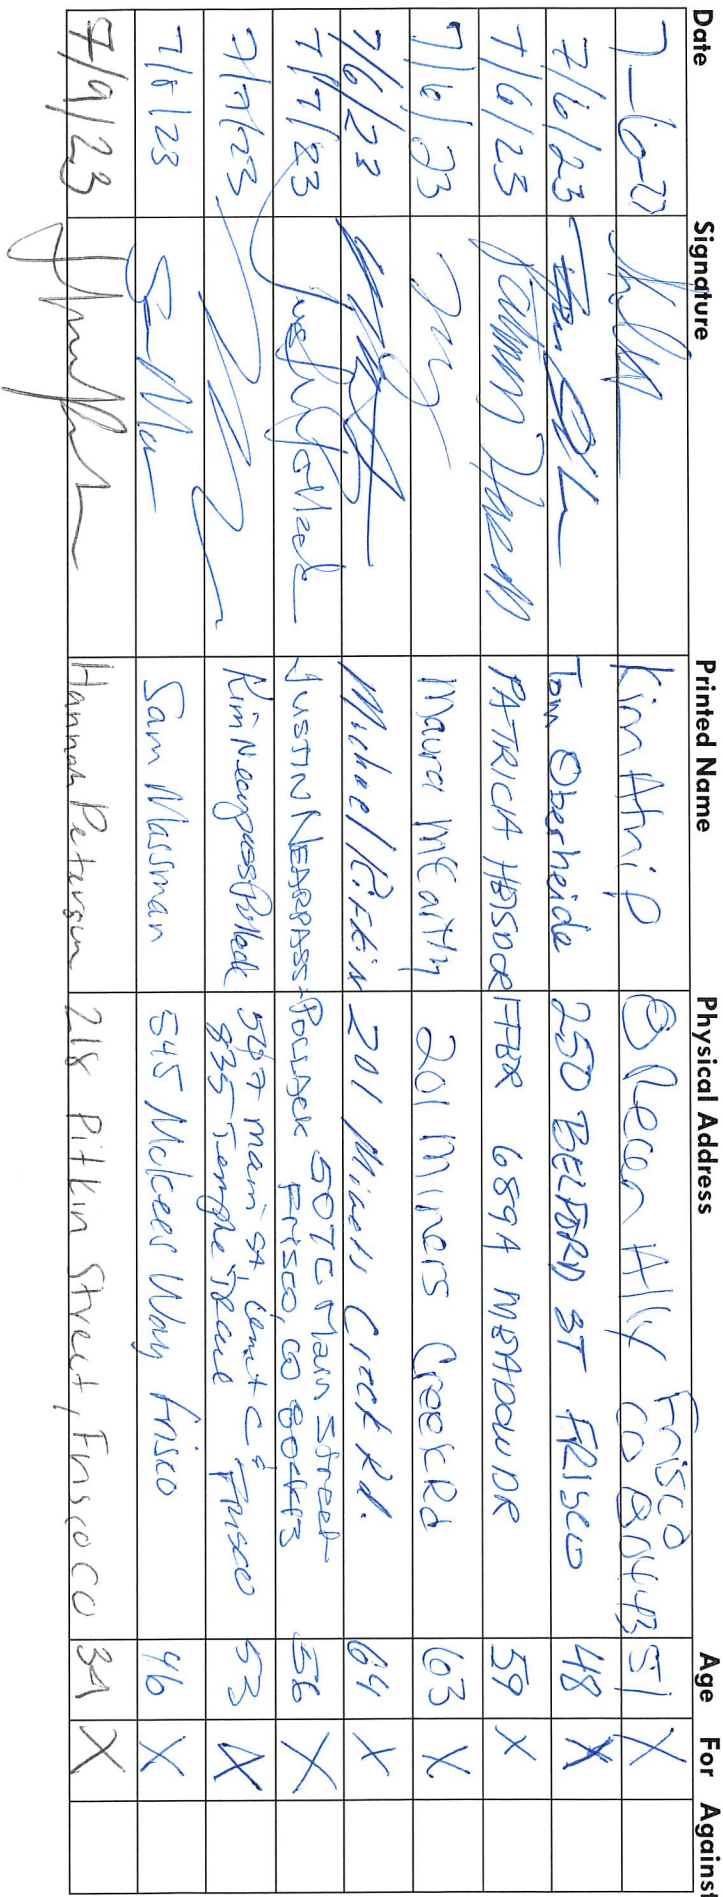 Date Signature Printed Name Physical Address Age For Against
Kim Atrip Frisco
CO 80443 51 X
7/6/23 Tom Oberheide 250 BELFORD ST FRISCO 48 X
7/6/23 PATRICIA 689A MEADOW DR 59 X
7/6/23 Maura McCarthy 201 Miners Creek Rd 63 X
7/6/23 Michael 201 Miners Creek Rd. 64 X
7/7/23 JUSTIN NEARPASS-POLLACK 507C Main Street
Frisco, CO 80443 56 X
7/7/23 Kim Nearpass Pollack main st Unit C
835 Tenmile Frisco 53 X
7/8/23 Sam Massman 545 McKees Way Frisco 46 X
7/9/23 Hannah Peterson 218 Pitkin Street, Frisco CO X